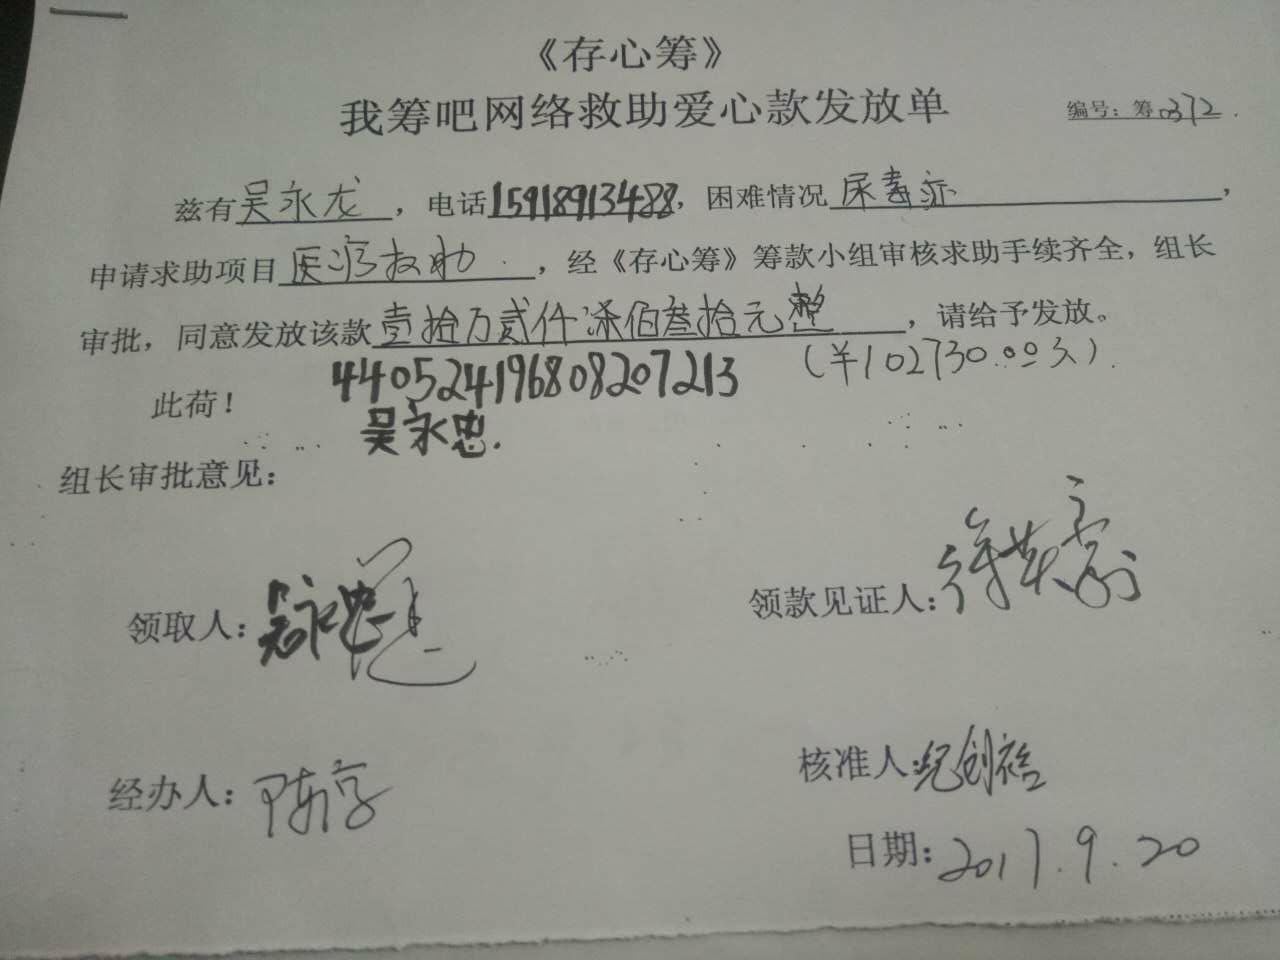 《存心筹》
我筹吧网络救助爱心款发放单
编号：筹0372
兹有吴永龙，电话15918913488，困难情况尿毒症，
申请求助项目医疗救助，经《存心筹》筹款小组审核求助手续齐全，组长
审批，同意发放该款壹拾万贰仟柒佰叁拾元整，请给予发放。
(￥102730.00元).
此荷！
440524196808207213
吴永忠.
组长审批意见：
领取人：吴永忠
领款见证人：
经办人：
核准人：
日期：2017.9.20